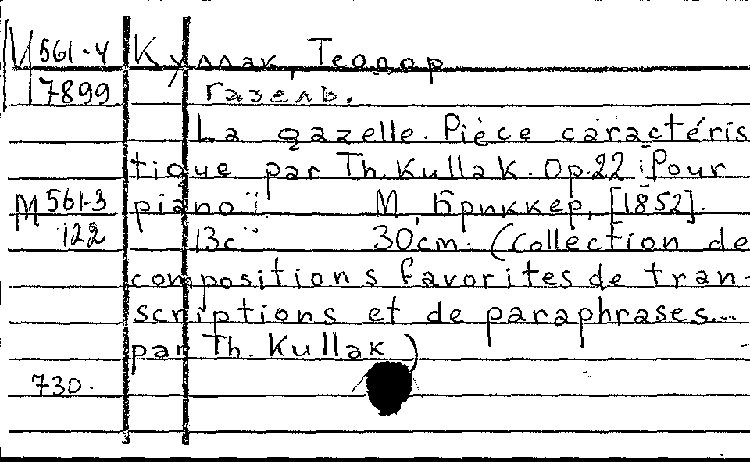 М 561-4 Куллак, Теодор
7899 Газель.
La gazelle. Pièce caractéris
tique par Th. Kullak. Op.22 [Pour
М 561-3 piano]. М, Бриккер, [1852].
122 13с. 30cm. (Collection de
compositions favorites de tran-
scriptions et de paraphrases...
par Th. Kullak)
730.